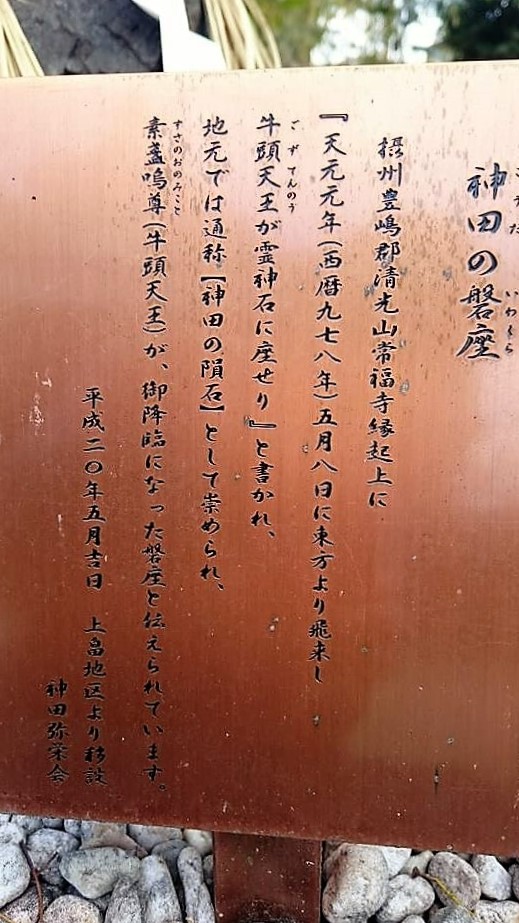 神田の磐座
いわくら
摂州豊嶋郡清光山常福寺縁起上に
『天元元年(西暦九七八年)五月八日に東方より飛来し
牛頭天王が霊神石に座せり』と書かれ、
ごずてんのう
地元では通称【神田の隕石】として崇められ、
素盞嗚尊(牛頭天王)が、御降臨になった磐座と伝えられています。
すさのおのみこと
平成二〇年五月吉日 上畠地区より移設
神田弥栄会